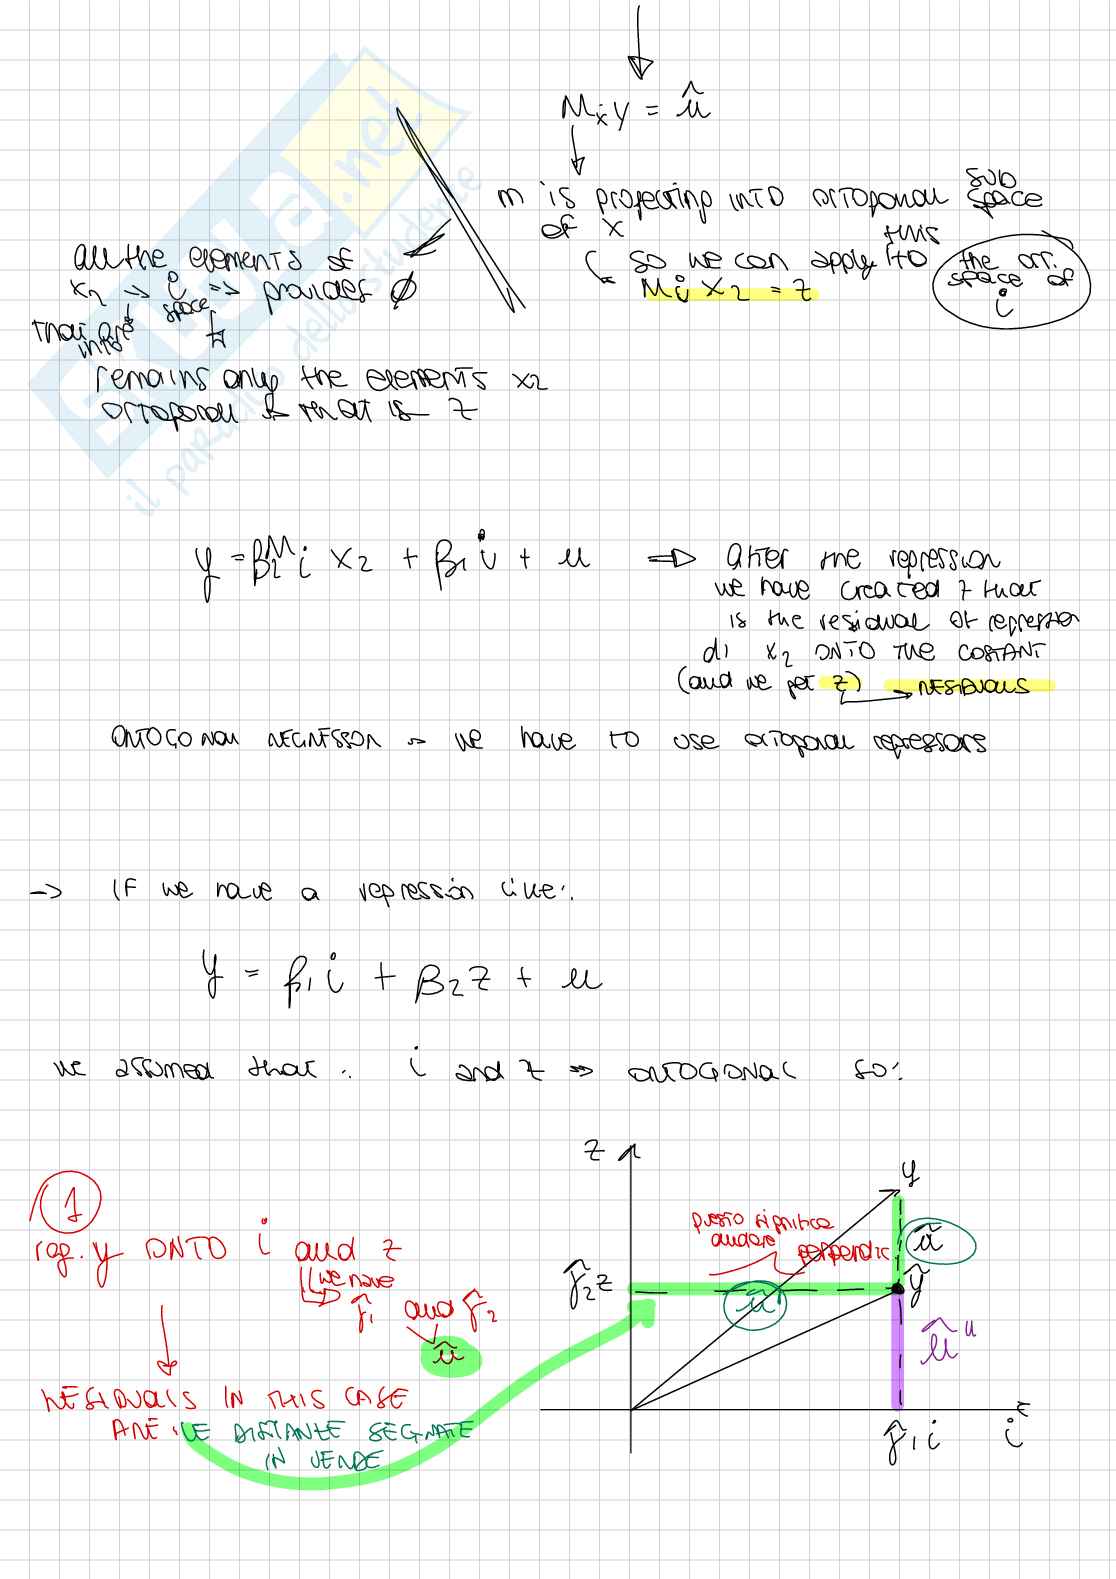 M_x y = û
m is projecting INTO ortogonal sub space
of x
so we can apply this to the ort. space of i
M_i x2 = z
all the elements of
x2 → i => provides ∅
that are into space
remains only the elements x2
ortogonal that is z
y = β2 M_i x2 + β1 i + u => after the regression
we have created z that
is the residual of regression
di x2 ONTO THE COSTANT
(and we get z) → RESIDUALS
ORTOGONAL REGRESSION → we have to use ortogonal regressors
→ IF we have a regression like:
y = β1 i + β2 z + u
we assumed that: i and z => ORTOGONAL so:
1
reg. y ONTO i and z
we have
γ̂1 and γ̂2
û
RESIDUALS IN THIS CASE
ARE: LE DISTANZE SEGNATE
IN VERDE
z
y
questo significa
andare perpendic.
û
γ̂2 z
û
ŷ
û"
γ̂1 i
i
SKUOLA.net
il paradiso dello studente